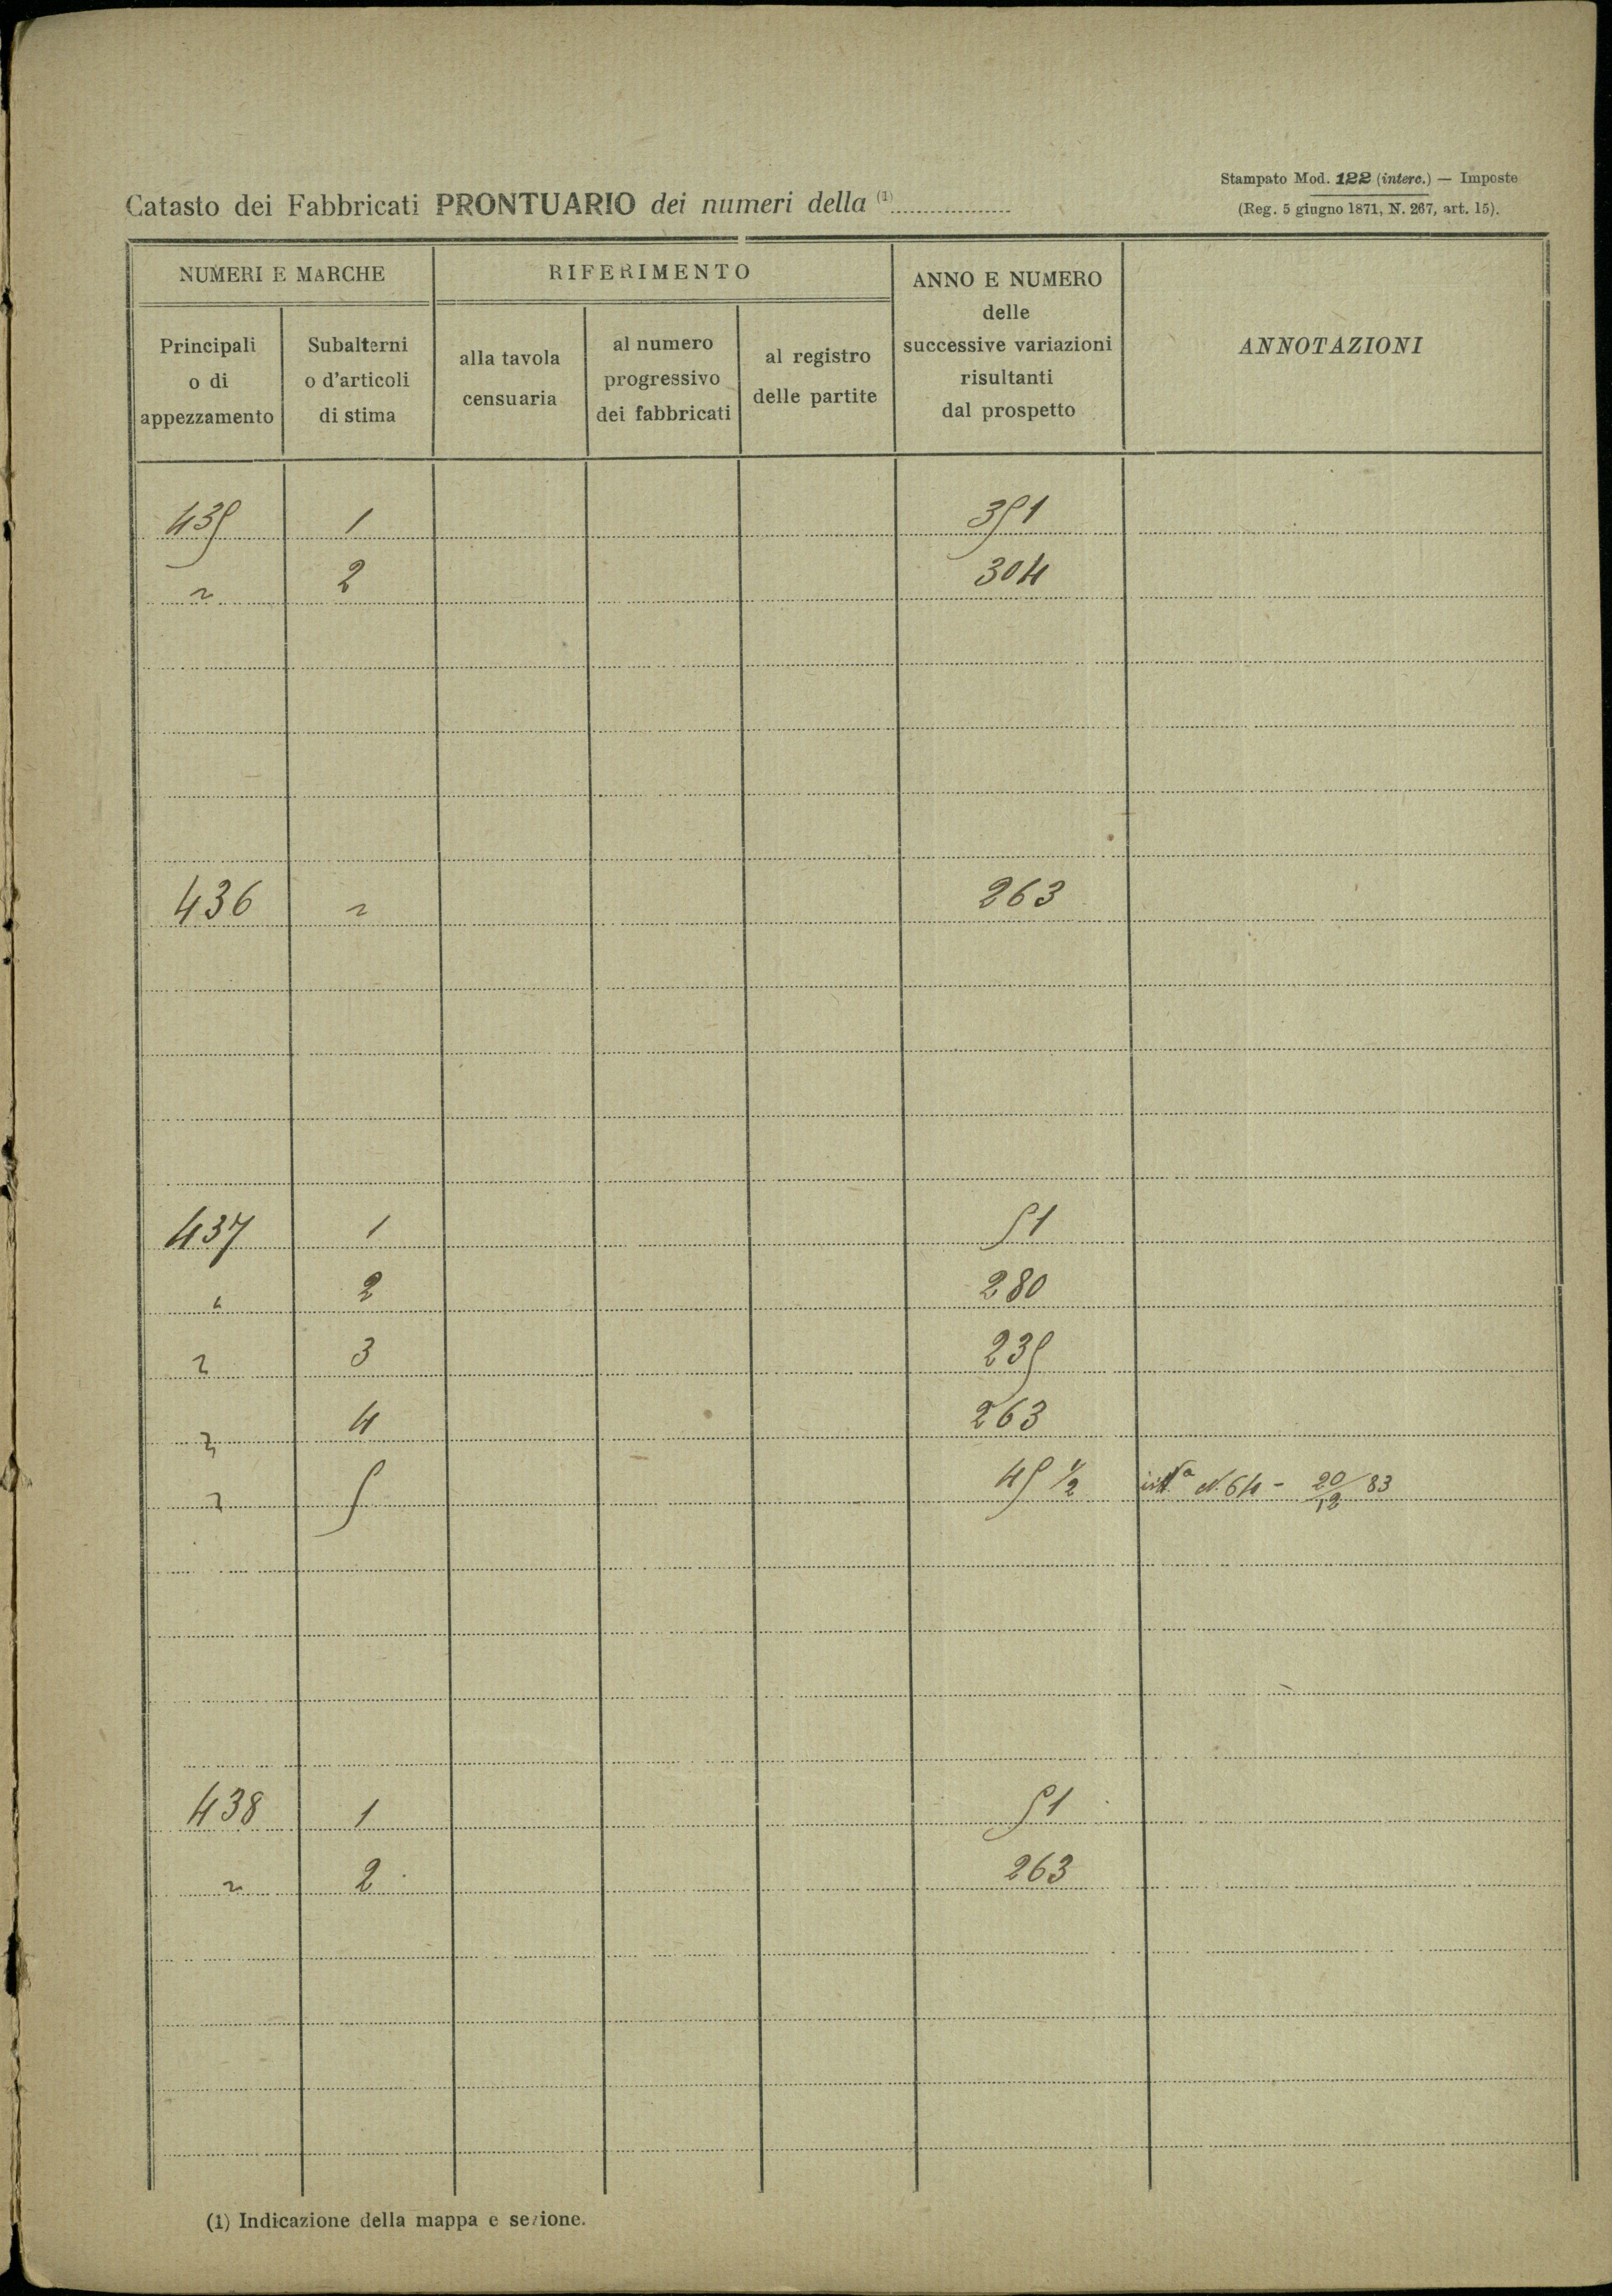 Stampato Mod. 122 (interc.) — Imposte
(Reg. 5 giugno 1871, N. 267, art. 15).
Catasto dei Fabbricati PRONTUARIO dei numeri della (1)
NUMERI E MARCHE
RIFERIMENTO
ANNO E NUMERO
delle
successive variazioni
risultanti
dal prospetto
ANNOTAZIONI
Principali
o di
appezzamento
Subalterni
o d'articoli
di stima
alla tavola
censuaria
al numero
progressivo
dei fabbricati
al registro
delle partite
435 1 351
" 2 304
436 " 263
437 1 51
" 2 280
" 3 235
" 4 263
" 5 45 1/2 N. 64 - 20/12 83
438 1 51
" 2 263
(1) Indicazione della mappa e sezione.